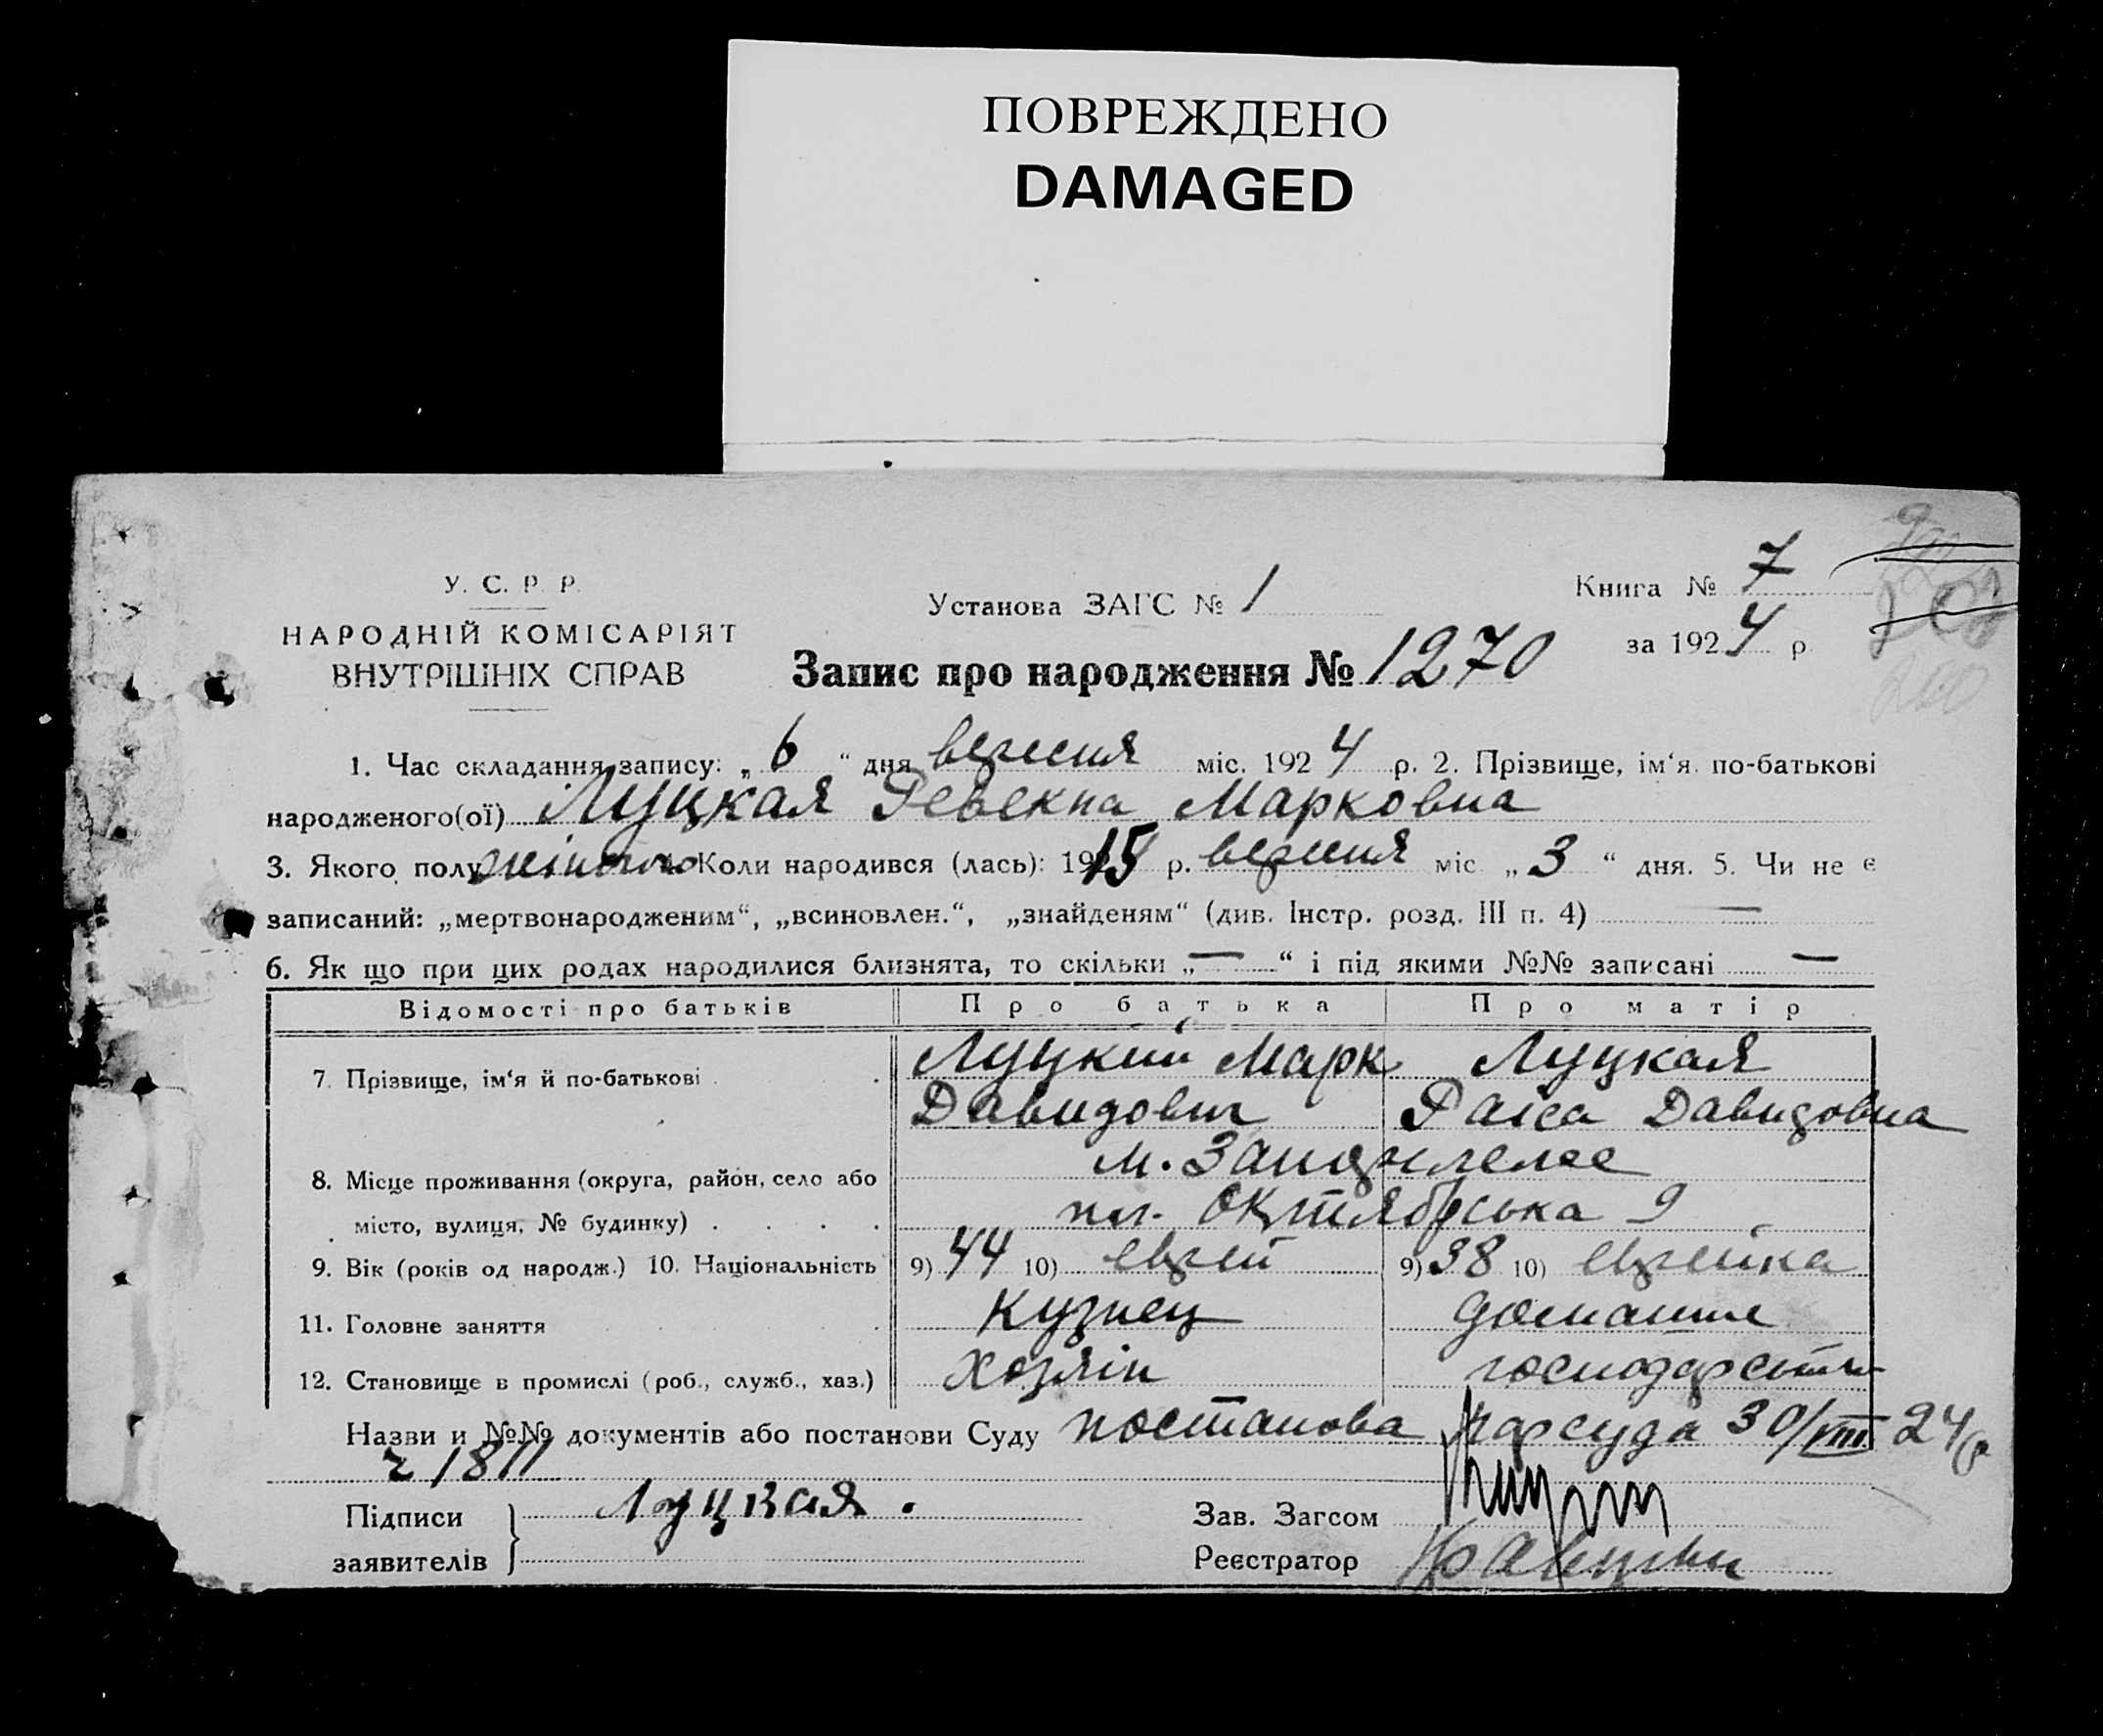 ПОВРЕЖДЕНО
DAMAGED
У. С. Р. Р.
НАРОДНІЙ КОМІСАРІЯТ
ВНУТРІШНІХ СПРАВ
Установа ЗАГС № 1
Книга № 7
за 1924 р.
Запис про народження № 1270
1. Час складання запису: „6“ дня вересня міс. 1924 р. 2. Прізвище, ім‘я, по-батькові
народженого(ої) Луцкая Ревекка Марковна
3. Якого полу жіночого 4. Коли народився (лась): 1915 р. вересня міс „3“ дня. 5. Чи не є
записаний: „мертвонародженим“, „всиновлен.“, „знайденям“ (див. Інстр. розд. III п. 4) —
6. Як що при цих родах народилися близнята, то скільки „—“ і під якими №№ записані —
Відомості про батьків Про батька Про матір
7. Прізвище, ім‘я й по-батькові Луцкий Марк Луцкая
Давидович Раїса Давидовна
8. Місце проживання (округа, район, село або м.
місто, вулиця, № будинку) Октябрська 9
9. Вік (років од народж.) 10. Національність 9) 44 10) еврей 9) 38 10) еврейка
11. Головне заняття Кузнец домашнє
12. Становище в промислі (роб., служб., хаз.) Хозяін господарство
Назви и №№ документів або постанови Суду постанова нарсуда 30/VIII 24 р
1811
Підписи Луцкая.
заявителів
Зав. Загсом
Реєстратор